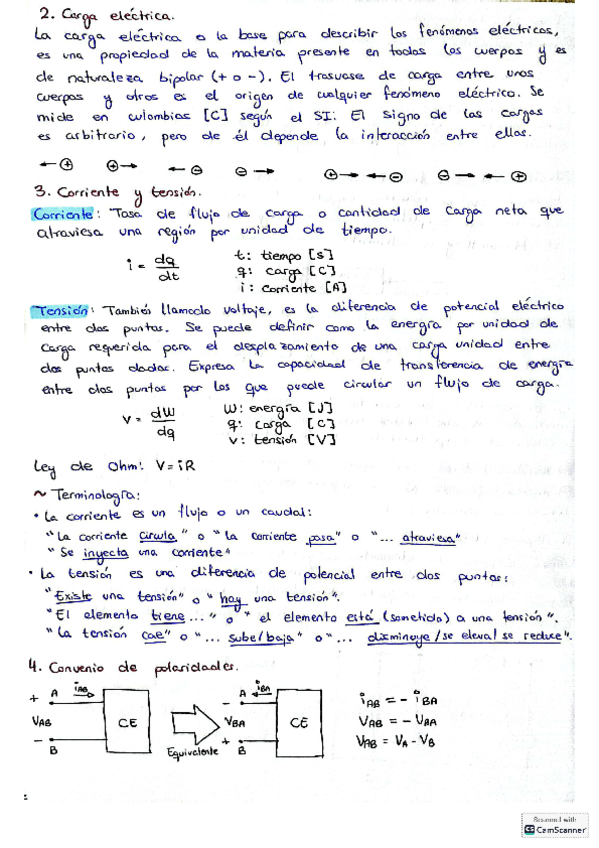 2. Carga eléctrica.
La carga eléctrica o la base para describir los fenómenos eléctricos,
es una propiedad de la materia presente en todos los cuerpos y es
de naturaleza bipolar (+ o -). El trasvase de carga entre unos
cuerpos y otros es el origen de cualquier fenómeno eléctrico. Se
mide en culombios [C] según el SI: El signo de las cargas
es arbitrario, pero de él depende la interacción entre ellas.
← ⊕ ⊕ → ← ⊖ ⊖ → ⊕ → ← ⊖ ⊖ → ← ⊕
3. Corriente y tensión.
Corriente: Tasa de flujo de carga o cantidad de carga neta que
atraviesa una región por unidad de tiempo.
i = dq/dt
t: tiempo [s]
q: carga [C]
i: corriente [A]
Tensión: También llamado voltaje, es la diferencia de potencial eléctrico
entre dos puntos. Se puede definir como la energía por unidad de
carga requerida para el desplazamiento de una carga unidad entre
dos puntos dados. Expresa la capacidad de transferencia de energía
entre dos puntos por los que puede circular un flujo de carga.
v = dW/dq
W: energía [J]
q: carga [C]
v: tensión [V]
Ley de Ohm: V = iR
~ Terminología:
• La corriente es un flujo o un caudal:
"La corriente circula" o "la corriente pasa" o "... atraviesa"
"Se inyecta una corriente"
• La tensión es una diferencia de potencial entre dos puntos:
"Existe una tensión" o "hay una tensión".
"El elemento tiene..." o "el elemento está (sometido) a una tensión".
"La tensión cae" o "... sube/baja" o "... disminuye/se eleva/se reduce".
4. Convenio de polaridades.
+ A iAB
VAB CE
- B
Equivalente
- A iBA
VBA CE
+ B
iAB = - iBA
VAB = - VBA
VAB = VA - VB
Scanned with
CS CamScanner